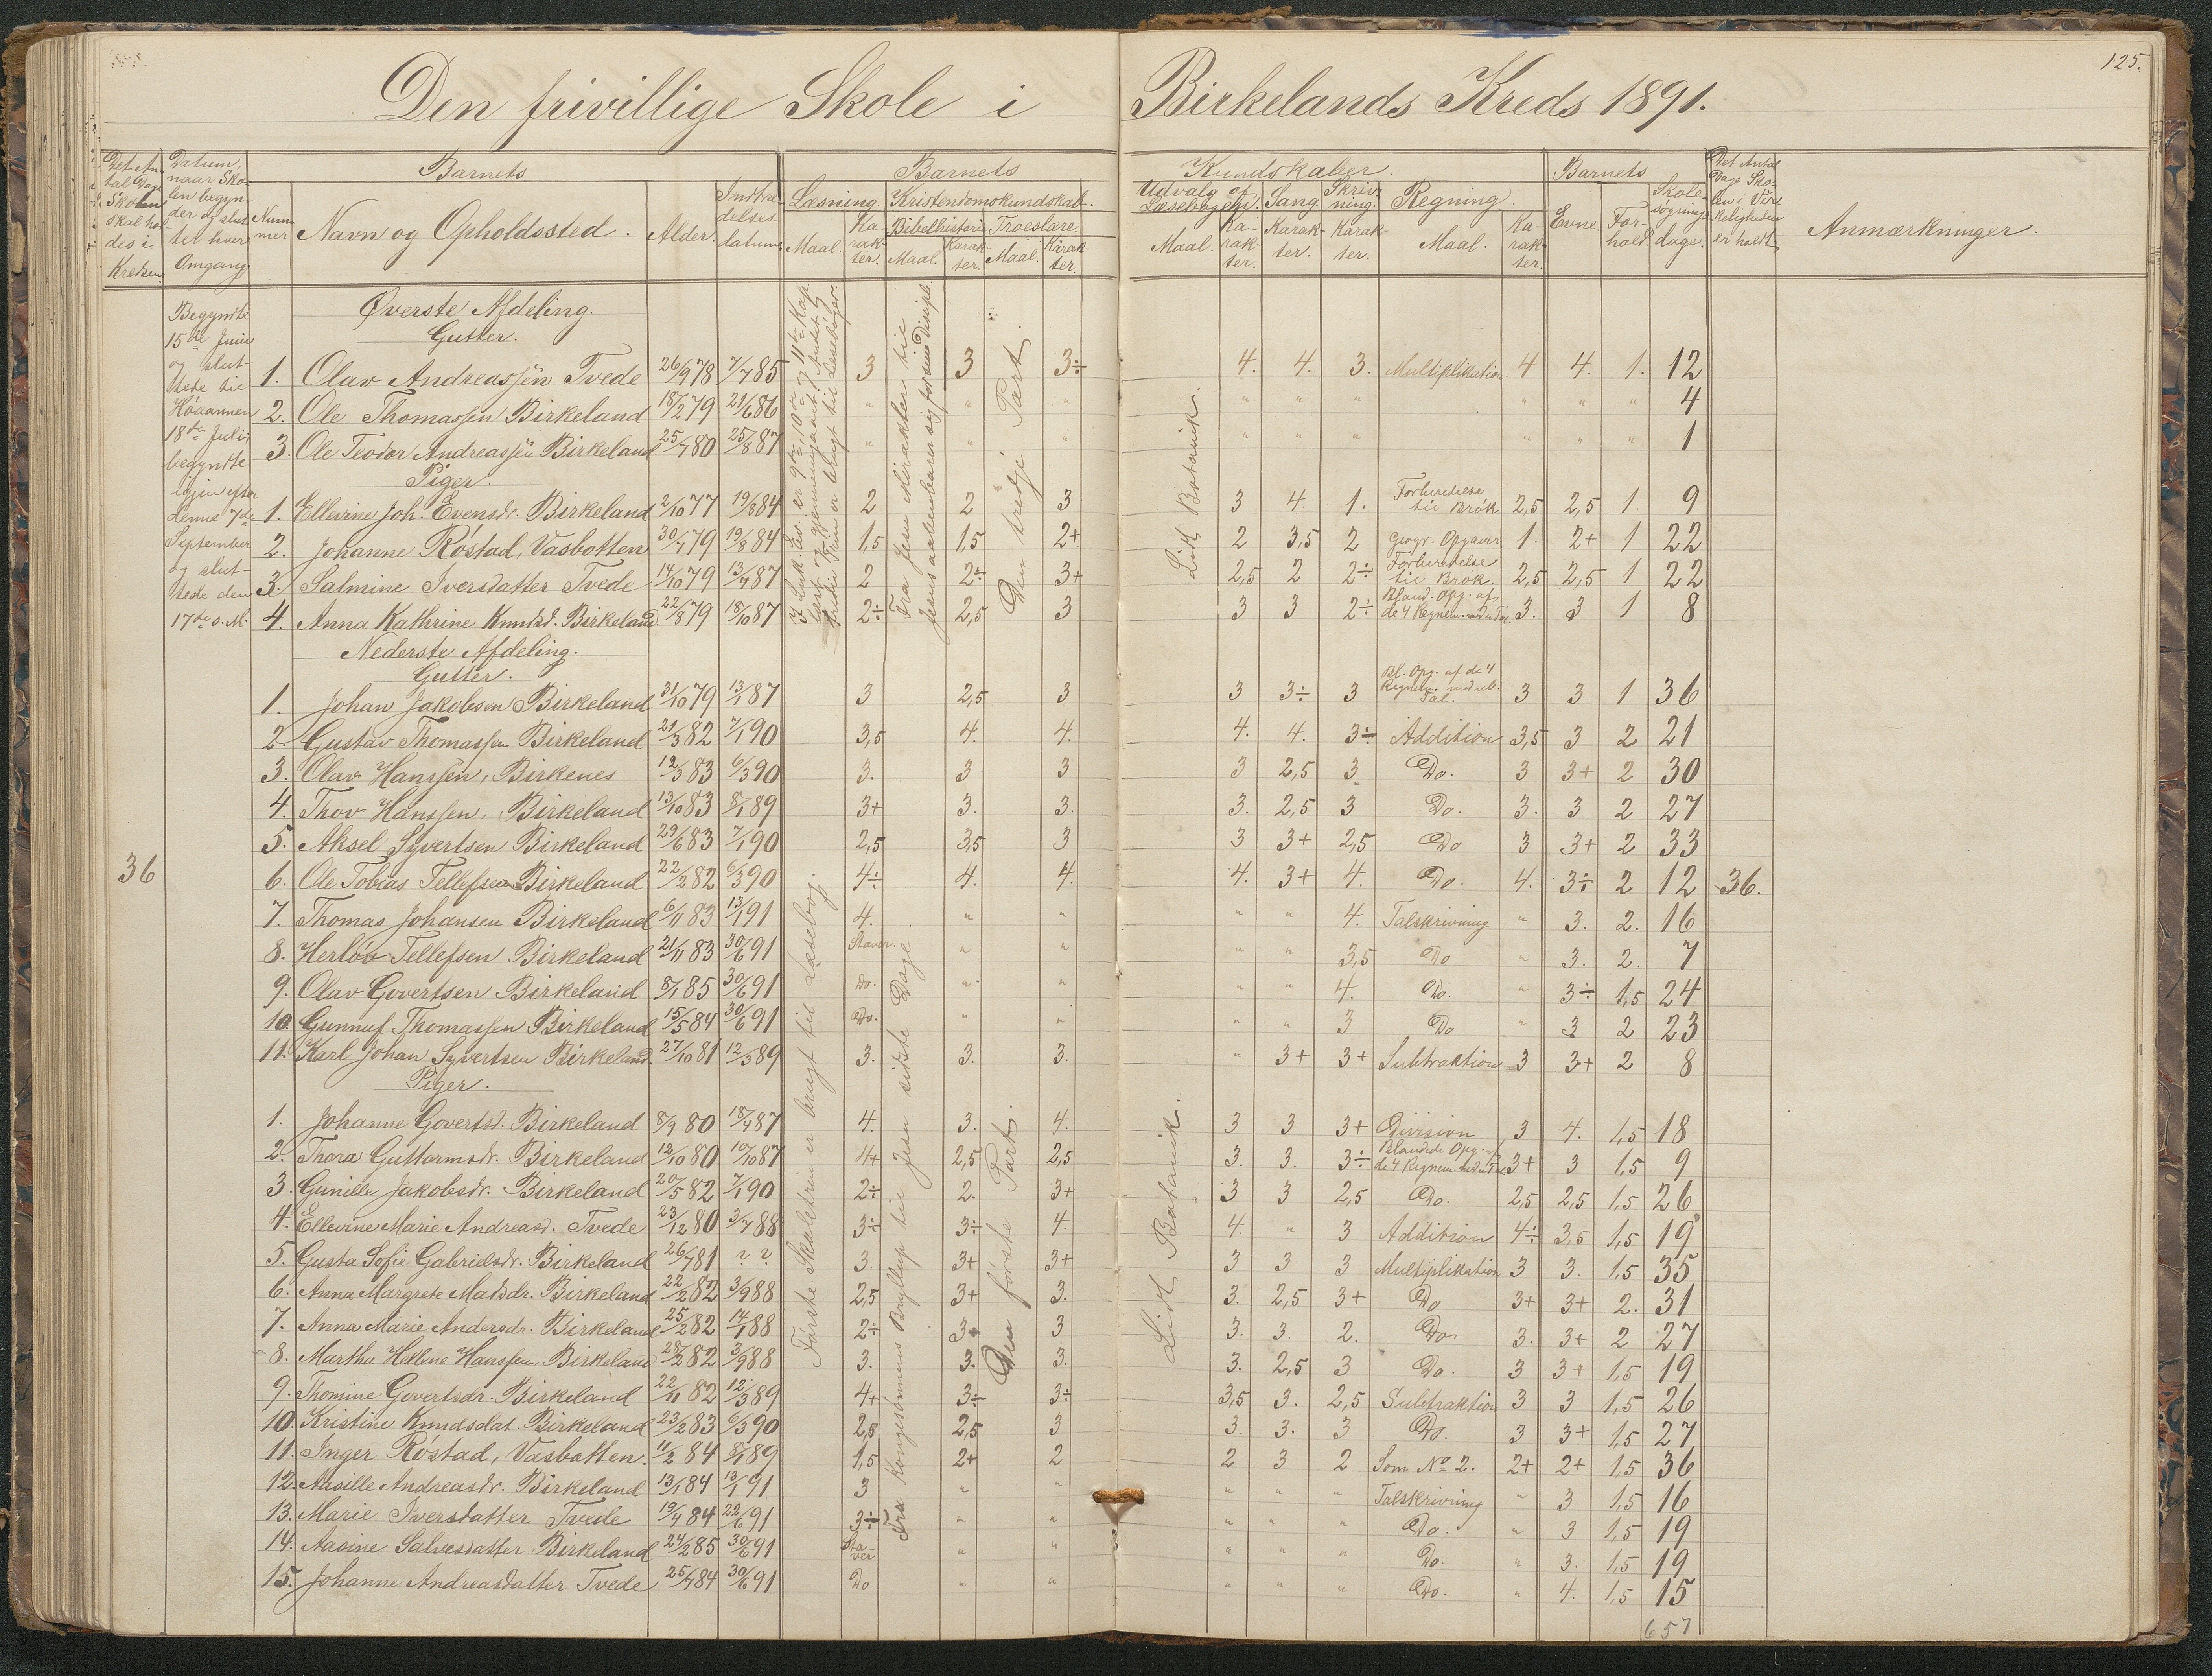 125.
Den frivillige Skole i Birkelands Kreds 1891.
Det Antal Dage Skolen skal holdes i Kredsen
Datum, naar Skolen begynder og sluttet hver Omgang.
Barnets
Nummer
Navn og Opholdssted.
Alder.
Indtrædelsesdatum.
Barnets Kundskaber.
Læsning. Kristendomskundskab.
Bibelhistorie Troeslære.
Maal. Karakter. Maal. Karakter. Maal. Karakter.
Udvalg af Læsebogen. Sang. Skrivning. Regning.
Maal. Karakter. Karakter. Karakter. Maal. Karakter.
Barnets
Evne. Forhold. Skolesøgningsdage.
Det Antal Dage Skolen i Virkeligheden er holdt
Anmærkninger.
Begyndte
15de Juni
og slut-
tede til
Høaannen
18de Juli,
begyndte
igjen efter
denne 7de
September
og slut-
tede den
17de s. M.
36
Øverste Afdeling.
Gutter.
1. Olav Andreassen Tvede 26/9 78 7/7 85 3 3 3÷ 4. 4. 3. Multiplikation. 4 4. 1. 12
2. Ole Thomassen Birkeland 18/2 79 21/6 86 " " " " " " " " " 4
3. Ole Teodor Andreassen Birkeland. 25/7 80 25/8 87 " " " " " " " " " 1
Piger.
1. Ellevine Joh. Evensdr. Birkeland 2/10 77 19/8 84 2 2 3 3 4. 1. Forberedelse til Brøk 2,5 2,5 1. 9
2. Johanne Røstad, Vasbotten 30/7 79 19/8 84 1,5 1,5 2+ 2 3,5 2 Geogr. Opgaver 1. 2+ 1 22
3. Salmine Iversdatter Tvede 14/10 79 13/7 87 2 2÷ 3+ 2,5 2 2÷ Forberedelse til Brøk. 2,5 2,5 1 22
4. Anna Kathrine Knudsd. Birkeland 22/8 79 18/10 87 2÷ 2,5 3 3 3 2÷ Bland. Opg. af de 4 Regnem. 3. 3 1 8
Den tredje Part.
Lidt Botanik.
Nederste Afdeling.
Gutter.
1. Johan Jakobsen Birkeland 31/10 79 13/1 87 3 2,5 3 3 3÷ 3 Bl. Opg. af de 4 Regnem. Tal. 3 3 1 36
2. Gustav Thomassen Birkeland 21/3 82 7/1 90 3,5 4. 4. 4. 4. 3÷ Addition 3,5 3 2 21
3. Olav Hanssen, Birkenes 12/3 83 6/3 90 3. 3 3 3 2,5 3 Do. 3 3+ 2 30
4. Thov Hanssen, Birkeland 13/10 83 8/1 89 3+ 3. 3. 3. 2,5 3 Do. 3. 3 2 27
5. Aksel Syvertsen Birkeland 29/6 83 7/1 90 2,5 3,5 3 3 3+ 2,5 Do 3 3+ 2 33
6. Ole Tobias Tellefsen Birkeland 22/2 82 6/3 90 4÷ 4. 4. 4. 3+ 4. Do. 4. 3÷ 2 12 36.
7. Thomas Johansen Birkeland 6/11 83 13/1 91 4. " " " " 4. Talskrivning " 3. 2. 16
8. Herløv Tellefsen Birkeland 21/11 83 30/6 91 Staver. " " " " 3,5 Do " 3. 2. 7
9. Olav Govertsen Birkeland 8/1 85 30/6 91 Do. " " " " 4. Do. " 3÷ 1,5 24
10. Gunnuf Thomassen Birkeland 15/5 84 30/6 91 Do. " " " " 3 Do " 3 2 23
11. Karl Johan Syvertsen Birkeland. 27/10 81 12/3 89 3. 3. 3. " 3+ 3+ Subtraktion 3 3+ 2 8
Piger.
1. Johanne Govertsd. Birkeland 8/9 80 18/7 87 4. 3. 4. 3 3 3+ Division 3 4. 1,5 18
2. Thora Guttormsdr. Birkeland 12/10 80 10/10 87 4+ 2,5 2,5 3. 3. 3÷ Blandede Opg. af de 4 Regnem. 3+ 3 1,5 9
3. Gunille Jakobsdr. Birkeland 20/5 82 7/1 90 2÷ 2. 3+ 3 3 2,5 Do. 2,5 2,5 1,5 26
4. Ellevine Marie Andreasd. Tvede 23/12 80 3/7 88 3÷ 3÷ 4. 4. " 3 Addition 4÷ 3,5 1,5 19
5. Gusta Sofie Gabrielsdr. Birkeland 26/7 81 ? ? 3. 3+ 3+ 3 3 3 Multiplikation 3 3. 1,5 35
6. Anna Margrete Madsdr. Birkeland 22/2 82 3/9 88 2,5 3+ 3. 3. 2,5 3+ Do 3+ 3+ 2. 31
7. Anna Marie Andersdr. Birkeland 25/2 82 14/1 88 2÷ 3+ 3 3. 3. 2. Do 3. 3+ 2 27
8. Martha Hellene Hanssen, Birkeland 28/2 82 3/9 88 3. 3. 3. 3. 2,5 3 Do. 3 3+ 1,5 19
9. Thomine Govertsdr. Birkeland 22/11 82 12/3 89 4+ 3÷ 3÷ 3,5 3. 2,5 Subtraktion 3 3 1,5 26
10. Kristine Knudsdat. Birkeland 23/2 83 6/3 90 2,5 2,5 3 3. 3. 3 Do. 3 3+ 1,5 27
11. Inger Røstad, Vasbotten. 11/2 84 8/1 89 1,5 2+ 2 2 3 2 Som No 2. 2+ 2+ 1,5 36
12. Aasille Andreasdr. Birkeland 13/1 84 13/1 91 3 " " " " " Talskrivning " 3 1,5 16
13. Marie Iversdatter Tvede 19/4 84 22/6 91 3÷ " " " " " Do. " 3 1,5 19
14. Aasine Salvesdatter Birkeland 24/2 85 30/6 91 Staver " " " " " Do. " 3. 1,5 19
15. Johanne Andreasdatter Tvede 25/7 84 30/6 91 Do " " " " " Do. " 4. 1,5 15
Første Skoletrin er brugt til Læsebog.
Fra Kongesønnens Bryllup til Jesu sidste Dage.
Den første Part.
Lidt Botanik.
657